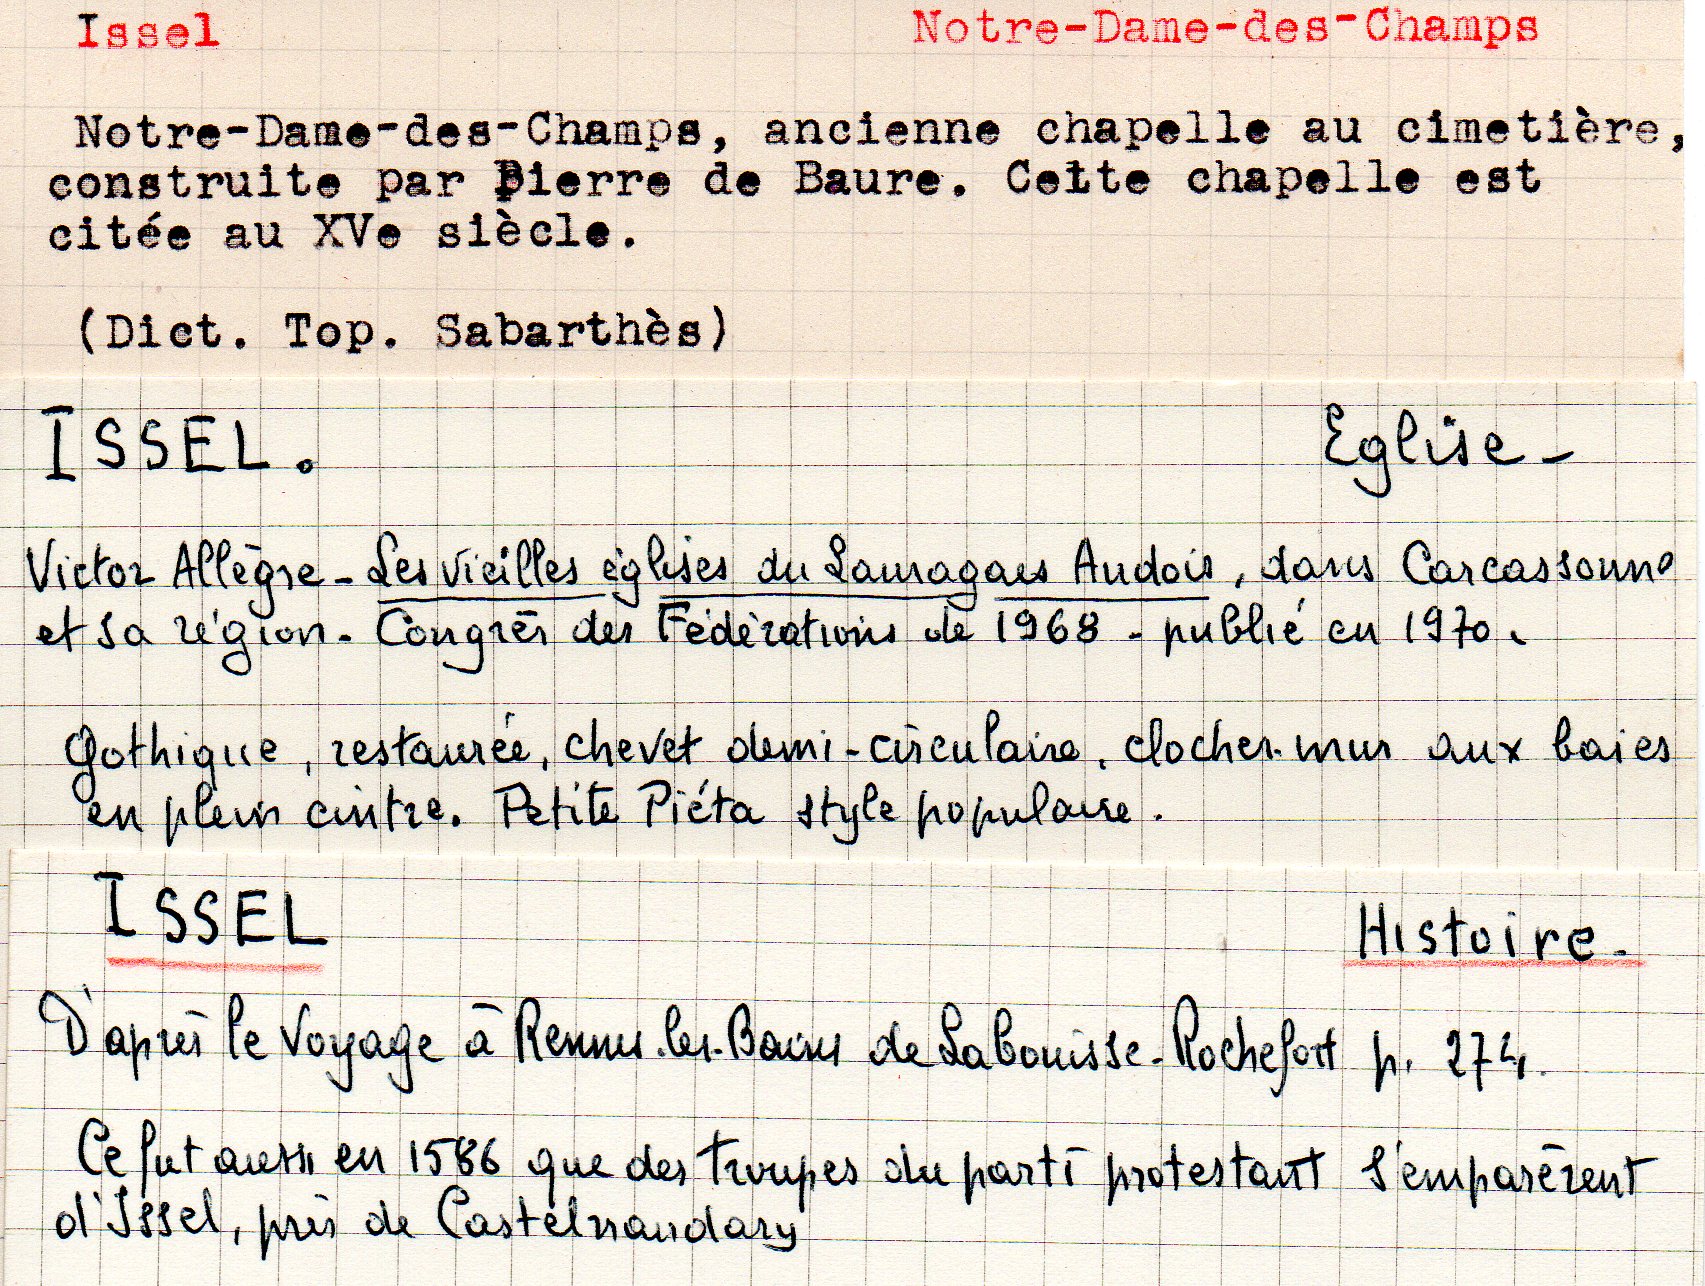 Issel Notre-Dame-des-Champs
Notre-Dame-des-Champs, ancienne chapelle au cimetière,
construite par Pierre de Baure. Cette chapelle est
citée au XVe siècle.
(Dict. Top. Sabarthès)
ISSEL. Eglise-
Victor Allègre - Les vieilles églises du Lauragais Audois, dans Carcassonne
et sa région - Congrès des Fédérations de 1968 - publié en 1970.
Gothique, restaurée, chevet demi-circulaire, clocher-mur aux baies
en plein cintre. Petite Piéta style populaire.
ISSEL Histoire-
D'après le Voyage à Rennes-les-Bains de Labouisse-Rochefort p. 274.
Ce fut aussi en 1586 que des troupes du parti protestant s'emparèrent
d'Issel, près de Castelnaudary